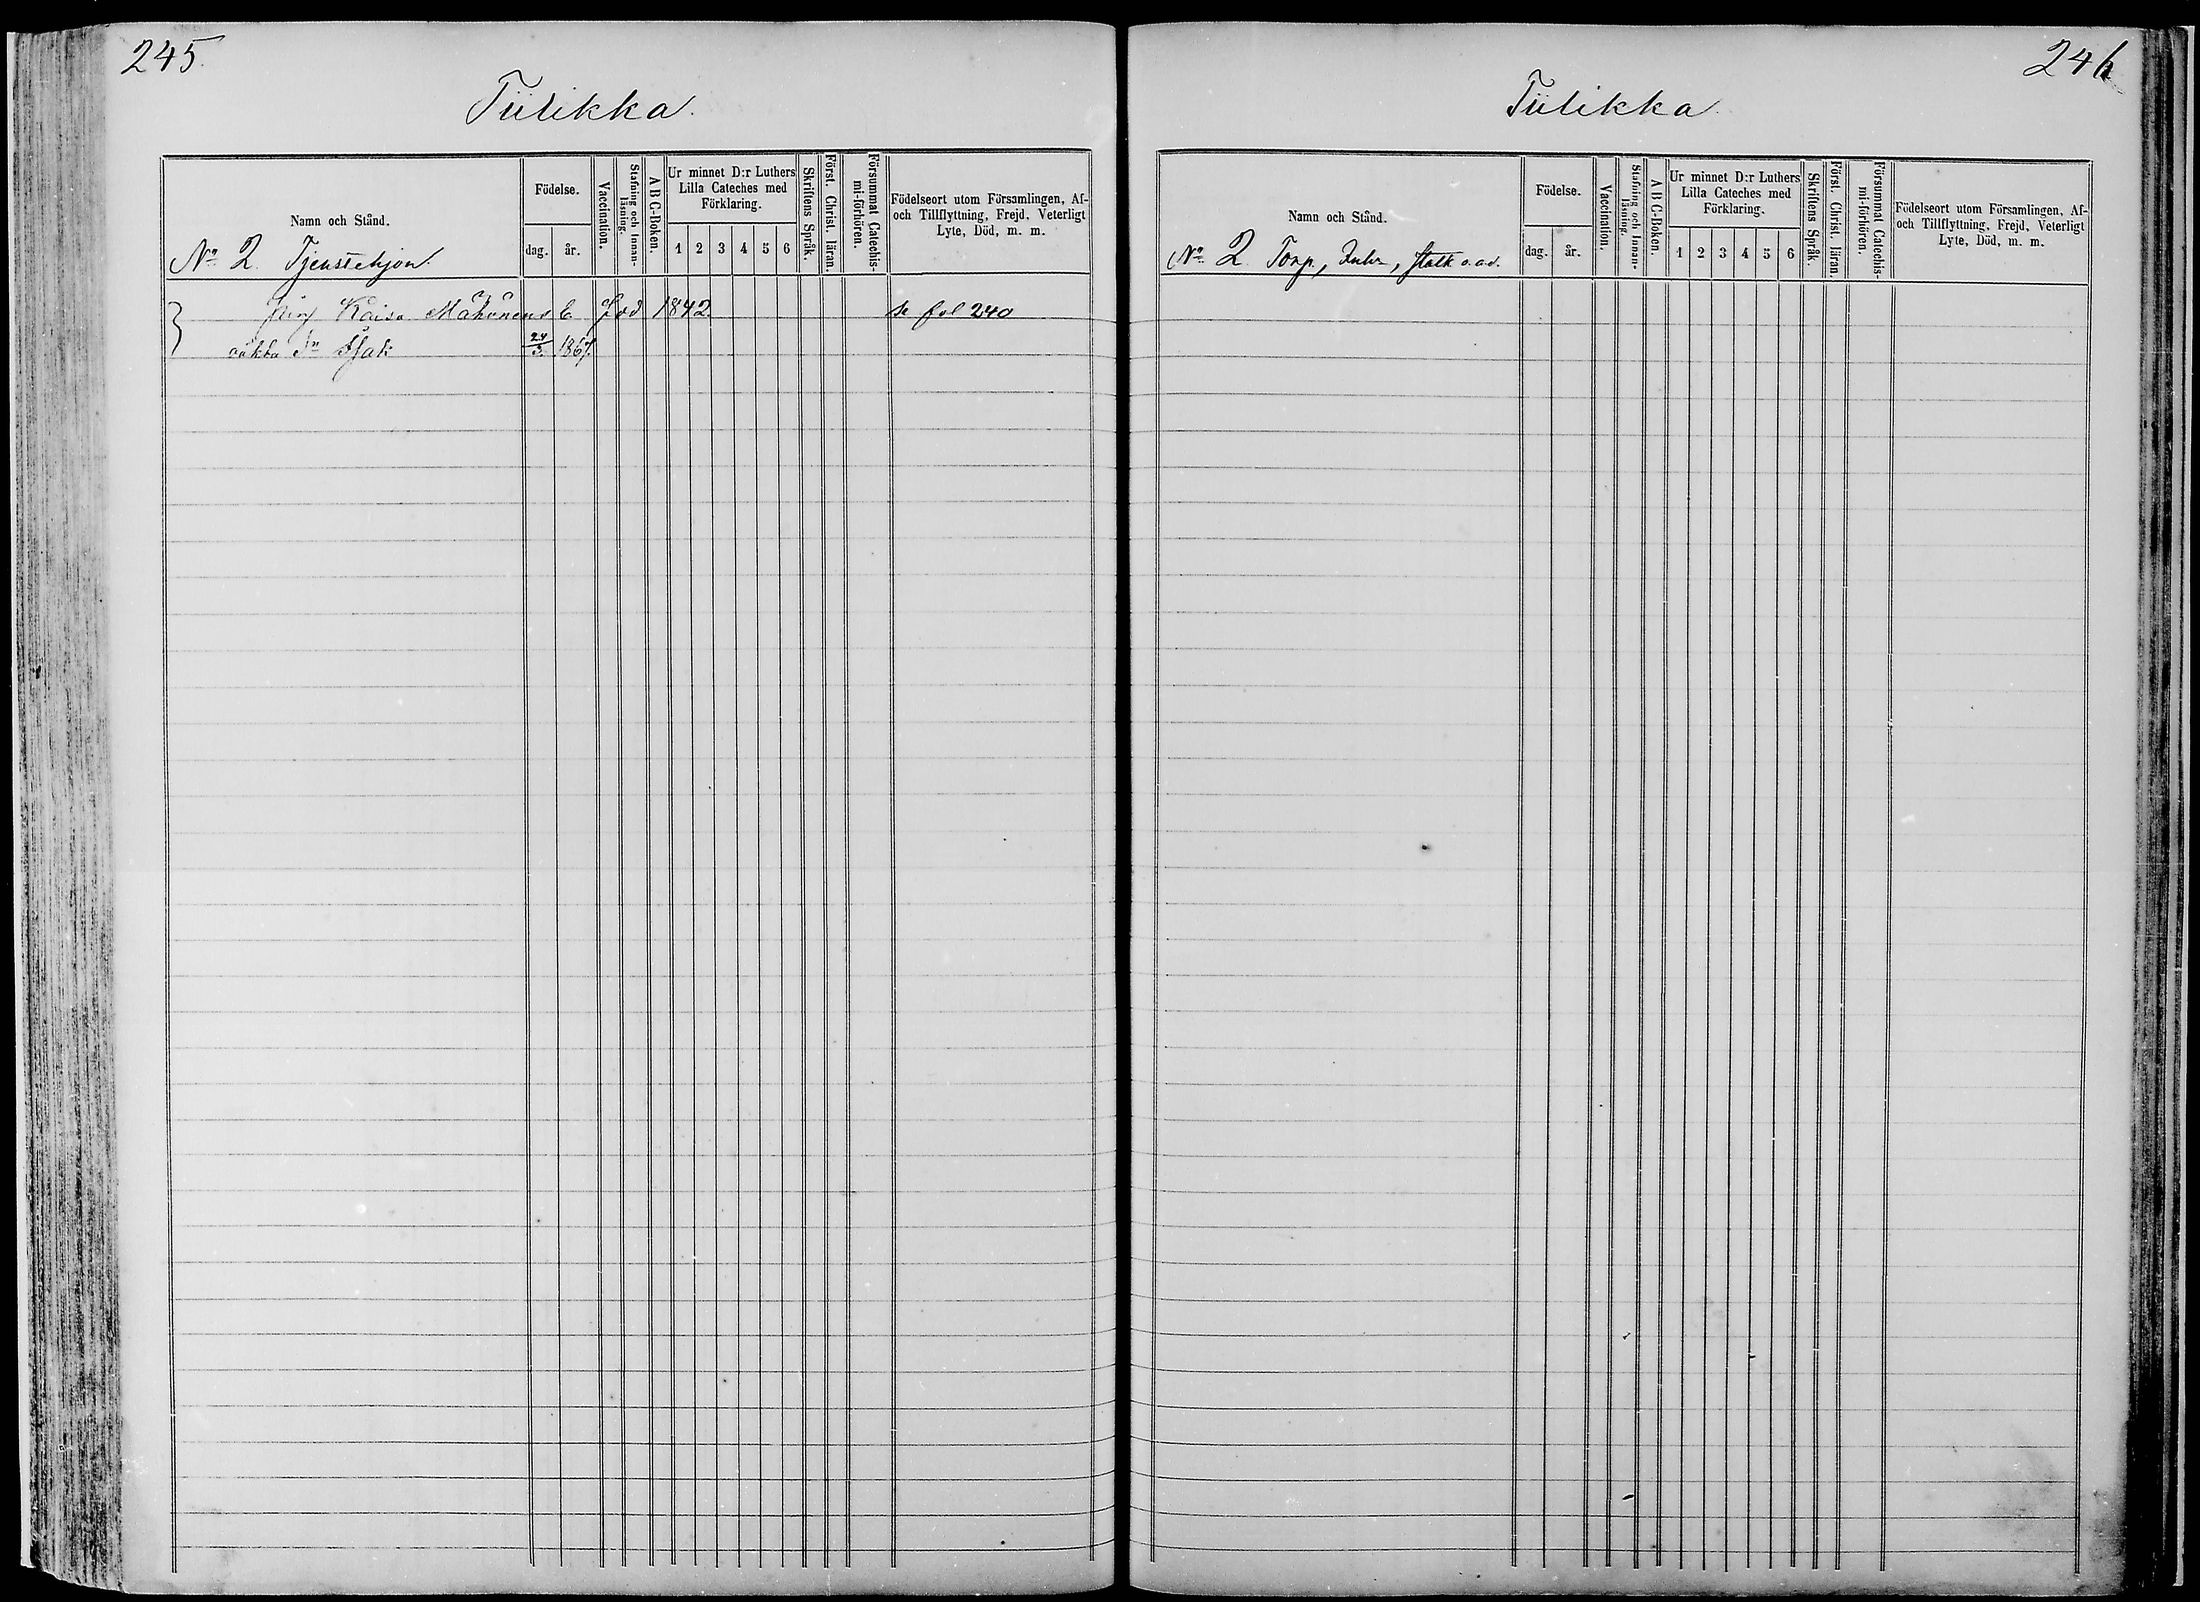 245.
Tiilikka.
Namn och Stånd.
Födelse.
dag.
år.
Vaccination.
Stafning och Innan-
läsning.
A B C-Boken.
Ur minnet D:r Luthers
Lilla Cateches med
Förklaring.
1 2 3 4 5 6
Skriftens Språk.
Först. Christ. läran.
Försummat Catechis-
mi-förhören.
Födelseort utom Församlingen, Af-
och Tillflyttning, Frejd, Veterligt
Lyte, Död, m. m.
No 2. Tjenstehjon
Kaisa Mähönens född 1842 se fol 240
oäkta Sn Isak 24/3 1867.
246
Tiilikka.
Namn och Stånd.
Födelse.
dag.
år.
Vaccination.
Stafning och Innan-
läsning.
A B C-Boken.
Ur minnet D:r Luthers
Lilla Cateches med
Förklaring.
1 2 3 4 5 6
Skriftens Språk.
Först. Christ. läran.
Försummat Catechis-
mi-förhören.
Födelseort utom Församlingen, Af-
och Tillflyttning, Frejd, Veterligt
Lyte, Död, m. m.
No 2. Torp, Inhr, statk o.a.d.